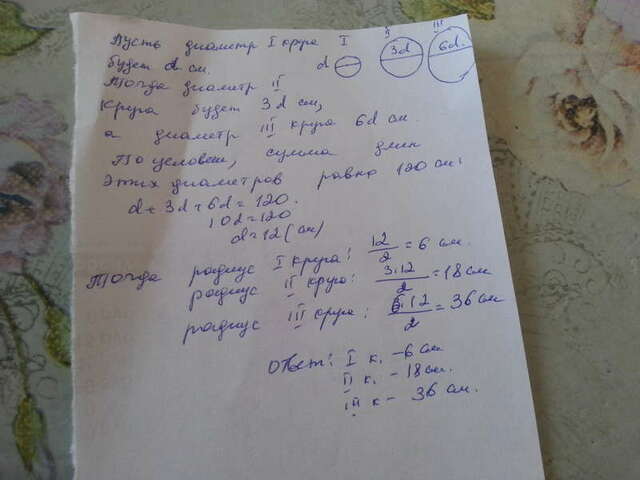 Пусть диаметр I круга I II III
будет d см. d 3d 6d
Тогда диаметр II
круга будет 3d см,
а диаметр III круга 6d см.
По условию, сумма длин
этих диаметров равно 120 см:
d + 3d + 6d = 120.
10d = 120
d = 12 (см)
Тогда радиус I круга: 12/2 = 6 см.
радиус II круга: 3·12/2 = 18 см
радиус III круга: 6·12/2 = 36 см
Ответ: I к. – 6 см
II к. – 18 см.
III к – 36 см.